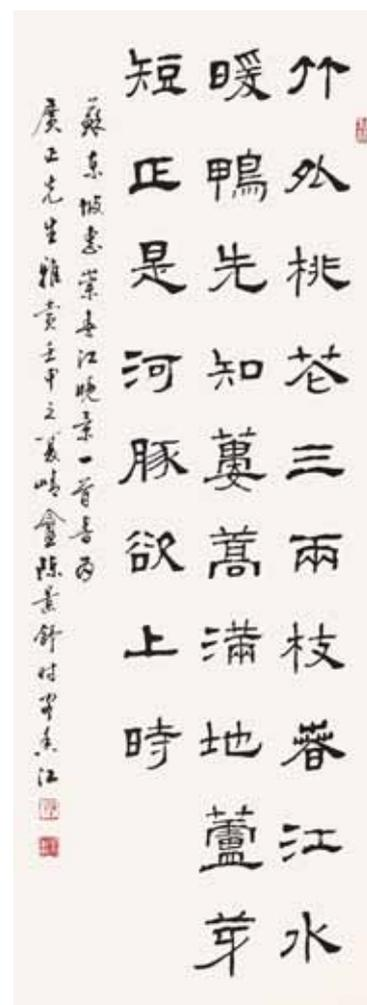 竹外桃花三兩枝春江水
暖鴨先知蔞蒿滿地蘆芽
短正是河豚欲上時
蘇東坡惠崇春江晚景一首書為
廣正先生雅賞壬申之夏崝盦陳景舒時客香江